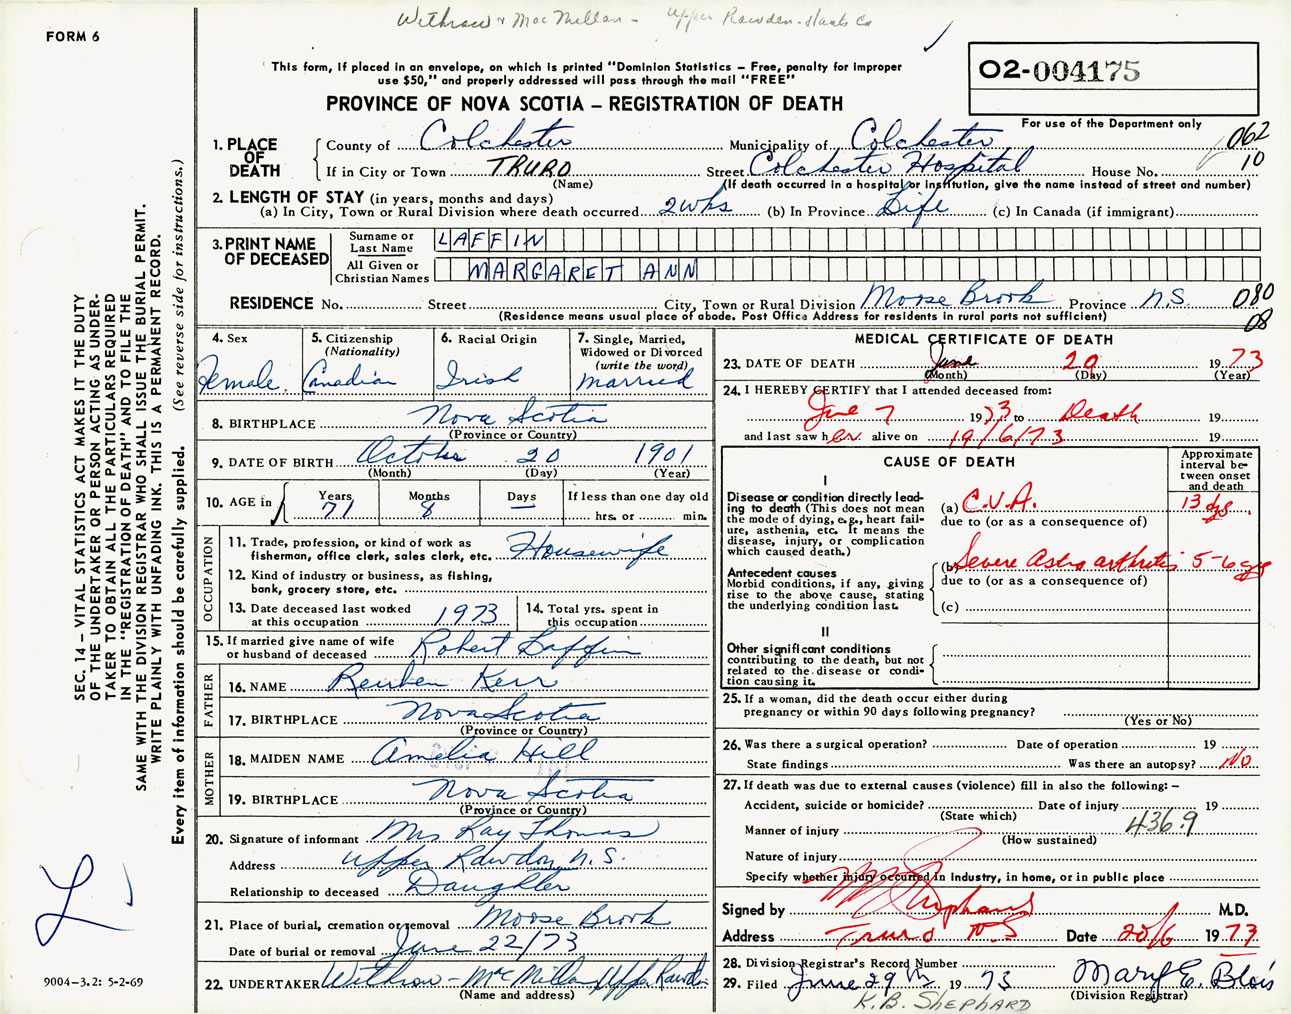 Withrow & MacMillan - Upper Rawdon - Hants Co
FORM 6
This form, if placed in an envelope, on which is printed "Dominion Statistics – Free, penalty for improper
use $50," and properly addressed will pass through the mail "FREE"
O2-004175
PROVINCE OF NOVA SCOTIA – REGISTRATION OF DEATH
For use of the Department only
062
10
1. PLACE OF DEATH
County of Colchester Municipality of Colchester
If in City or Town TRURO Street Colchester Hospital House No.
(Name) (If death occurred in a hospital or institution, give the name instead of street and number)
2. LENGTH OF STAY (in years, months and days)
(a) In City, Town or Rural Division where death occurred 2 wks (b) In Province Life (c) In Canada (if immigrant)
3. PRINT NAME OF DECEASED
Surname or Last Name LAFFIN
All Given or Christian Names MARGARET ANN
RESIDENCE No. Street City, Town or Rural Division Moose Brook Province N.S. 080
(Residence means usual place of abode. Post Office Address for residents in rural parts not sufficient) 08
4. Sex Female
5. Citizenship (Nationality) Canadian
6. Racial Origin Irish
7. Single, Married, Widowed or Divorced (write the word) Married
8. BIRTHPLACE Nova Scotia
(Province or Country)
9. DATE OF BIRTH October 20 1901
(Month) (Day) (Year)
10. AGE in Years 71 Months 8 Days — If less than one day old
hrs. or min.
OCCUPATION
11. Trade, profession, or kind of work as
fisherman, office clerk, sales clerk, etc. Housewife
12. Kind of industry or business, as fishing,
bank, grocery store, etc.
13. Date deceased last worked
at this occupation 1973
14. Total yrs. spent in
this occupation
15. If married give name of wife
or husband of deceased Robert Laffin
FATHER
16. NAME Reuben Kerr
17. BIRTHPLACE Nova Scotia
(Province or Country)
MOTHER
18. MAIDEN NAME Amelia Hill
19. BIRTHPLACE Nova Scotia
(Province or Country)
20. Signature of informant Mrs Ray Thomas
Address Upper Rawdon, N.S.
Relationship to deceased Daughter
21. Place of burial, cremation or removal Moose Brook
Date of burial or removal June 22/73
22. UNDERTAKER Withrow - McMillan Upper Rawdon
(Name and address)
MEDICAL CERTIFICATE OF DEATH
23. DATE OF DEATH June 20 1973
(Month) (Day) (Year)
24. I HEREBY CERTIFY that I attended deceased from:
June 7 1973 to Death 19
and last saw her alive on 19/6/73 19
CAUSE OF DEATH
Approximate
interval be-
tween onset
and death
I
Disease or condition directly lead-
ing to death (This does not mean
the mode of dying, e.g., heart fail-
ure, asthenia, etc. It means the
disease, injury, or complication
which caused death.)
(a) C.V.A. 13 dys.
due to (or as a consequence of)
Antecedent causes
Morbid conditions, if any, giving
rise to the above cause, stating
the underlying condition last.
(b) Severe arthritis 5-6 yrs
due to (or as a consequence of)
(c)
II
Other significant conditions
contributing to the death, but not
related to the disease or condi-
tion causing it.
25. If a woman, did the death occur either during
pregnancy or within 90 days following pregnancy?
(Yes or No)
26. Was there a surgical operation? Date of operation 19
State findings Was there an autopsy? No
27. If death was due to external causes (violence) fill in also the following: –
Accident, suicide or homicide? Date of injury 19
(State which)
Manner of injury 436.9
(How sustained)
Nature of injury
Specify whether injury occurred in Industry, in home, or in public place
Signed by M.D.
Address Truro N.S Date 20/6 1973
28. Division Registrar's Record Number
29. Filed June 29th 1973 Mary E. Blois
(Division Registrar)
K.B. SHEPHARD
SEC. 14 – VITAL STATISTICS ACT MAKES IT THE DUTY
OF THE UNDERTAKER OR PERSON ACTING AS UNDER-
TAKER TO OBTAIN ALL THE PARTICULARS REQUIRED
IN THE "REGISTRATION OF DEATH" AND TO FILE THE
SAME WITH THE DIVISION REGISTRAR WHO SHALL ISSUE THE BURIAL PERMIT.
WRITE PLAINLY WITH UNFADING INK. THIS IS A PERMANENT RECORD.
Every item of information should be carefully supplied. (See reverse side for instructions.)
L
9004-3.2: 5-2-69